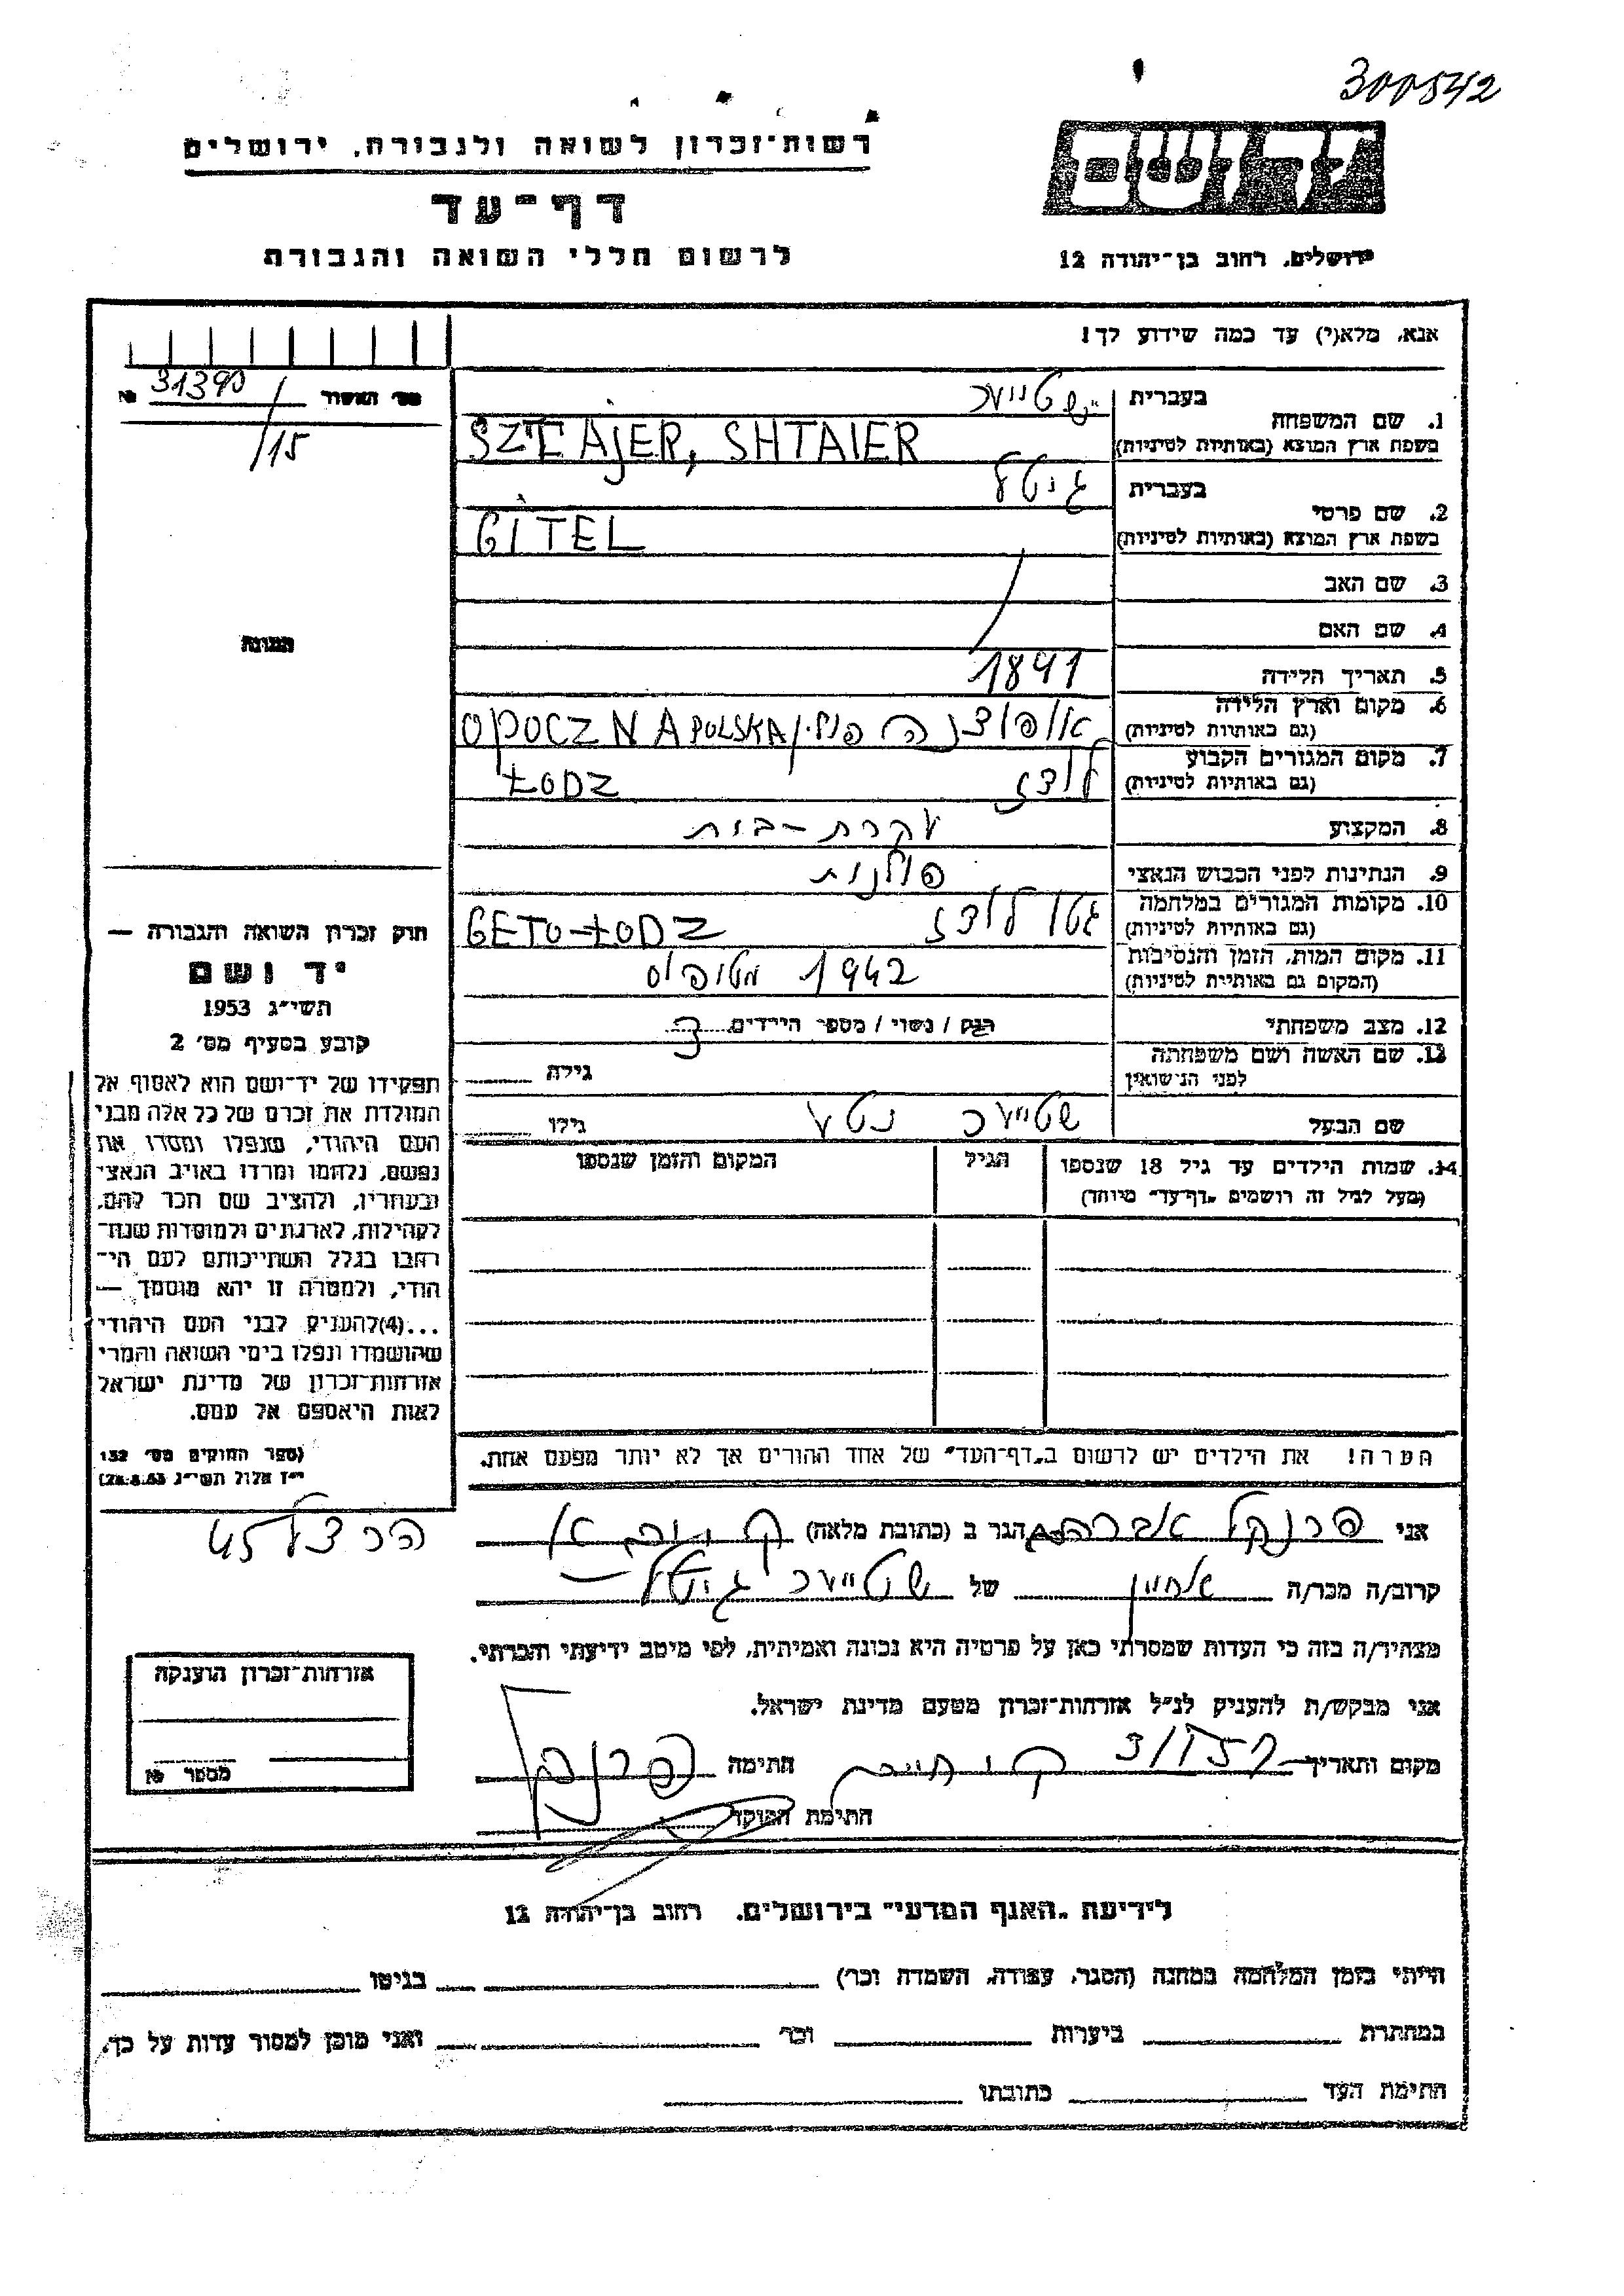 300542
רשות-זכרון לשואה ולגבורה, ירושלים
יד ושם
דף-עד
לרשום חללי השואה והגבורה
ירושלים, רחוב בן-יהודה 12
אנא, מלא(י) עד כמה שידוע לך!
מס׳ האשור 31390 №
/15
1. שם המשפחה בעברית שטייער
בשפת ארץ המוצא (באותיות לטיניות) SZTAJER, SHTAIER
2. שם פרטי בעברית גיטל
בשפת ארץ המוצא (באותיות לטיניות) GITEL
3. שם האב
4. שם האם
תמונה
5. תאריך הלידה 1891
6. מקום וארץ הלידה (גם באותיות לטיניות) אופוצנה OPOCZNA POLSKA
7. מקום המגורים הקבוע (גם באותיות לטיניות) לודז ŁODZ
8. המקצוע עקרת-בית
9. הנתינות לפני הכבוש הנאצי פולנית
10. מקומות המגורים במלחמה (גם באותיות לטיניות) גטו לודז GETO-ŁODZ
11. מקום המות, הזמן והנסיבות (המקום גם באותיות לטיניות) 1942 מטיפוס
12. מצב משפחתי רווק / נשוי / מספר הילדים 3
13. שם האשה ושם משפחתה לפני הנישואין גילה
שם הבעל שטייער נטע גילו
14. שמות הילדים עד גיל 18 שנספו הגיל המקום והזמן שנספו
(מעל לגיל זה רושמים "דף-עד" מיוחד)
חוק זכרון השואה והגבורה —
יד ושם
תשי״ג 1953
קובע בסעיף מס׳ 2
תפקידו של יד-ושם הוא לאסוף אל
המולדת את זכרם של כל אלה מבני
העם היהודי, שנפלו ומסרו את
נפשם, נלחמו ומרדו באויב הנאצי
ובעוזריו, ולהציב שם וזכר להם,
לקהילות, לארגונים ולמוסדות שנח-
רבו בגלל השתייכותם לעם הי-
הודי, ולמטרה זו יהא מוסמך —
...(4) להעניק לבני העם היהודי
שהושמדו ונפלו בימי השואה והמרי
אזרחות-זכרון של מדינת ישראל
לאות היאספם אל עמם.
(ספר החוקים מס׳ 132
י״ז אלול תשי״ג 28.8.53)
הערה! את הילדים יש לרשום ב"דף-העד" של אחד ההורים אך לא יותר מפעם אחת.
אני פרנקל אברהם הגר ב (כתובת מלאה)
הרצל 45
קרוב/ה מכר/ה אחיין של שטייער גיטל
מצהיר/ה בזה כי העדות שמסרתי כאן על פרטיה היא נכונה ואמיתית, לפי מיטב ידיעתי והכרתי.
אני מבקש/ת להעניק לנ״ל אזרחות-זכרון מטעם מדינת ישראל.
מקום ותאריך חתימה
חתימת הפוקד
אזרחות-זכרון הוענקה
מספר №
לידיעת "האגף המדעי" בירושלים, רחוב בן-יהודה 12
הייתי בזמן המלחמה במחנה (הסגר, עבודה, השמדה וכו׳) בגיטו
במחתרת ביערות וכו׳ ואני מוכן למסור עדות על כך.
חתימת העד כתובתו